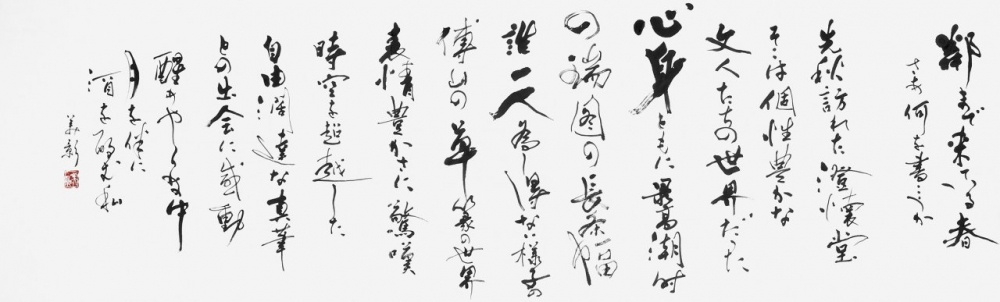 鄰まで来てる春
さあ何を書こうか
先秋訪れた澄懐堂
そこは個性豊かな
文人たちの世界だった
心身ともに最高潮時
の端図の長条幅
誰一人為し得ない様子の
傅山の草篆の世界
表情豊かさに驚嘆
時空を超越した
自由濶達な真筆
との出会に感動
醒めやらぬ中
月を供に
酒を酌む私
美彰